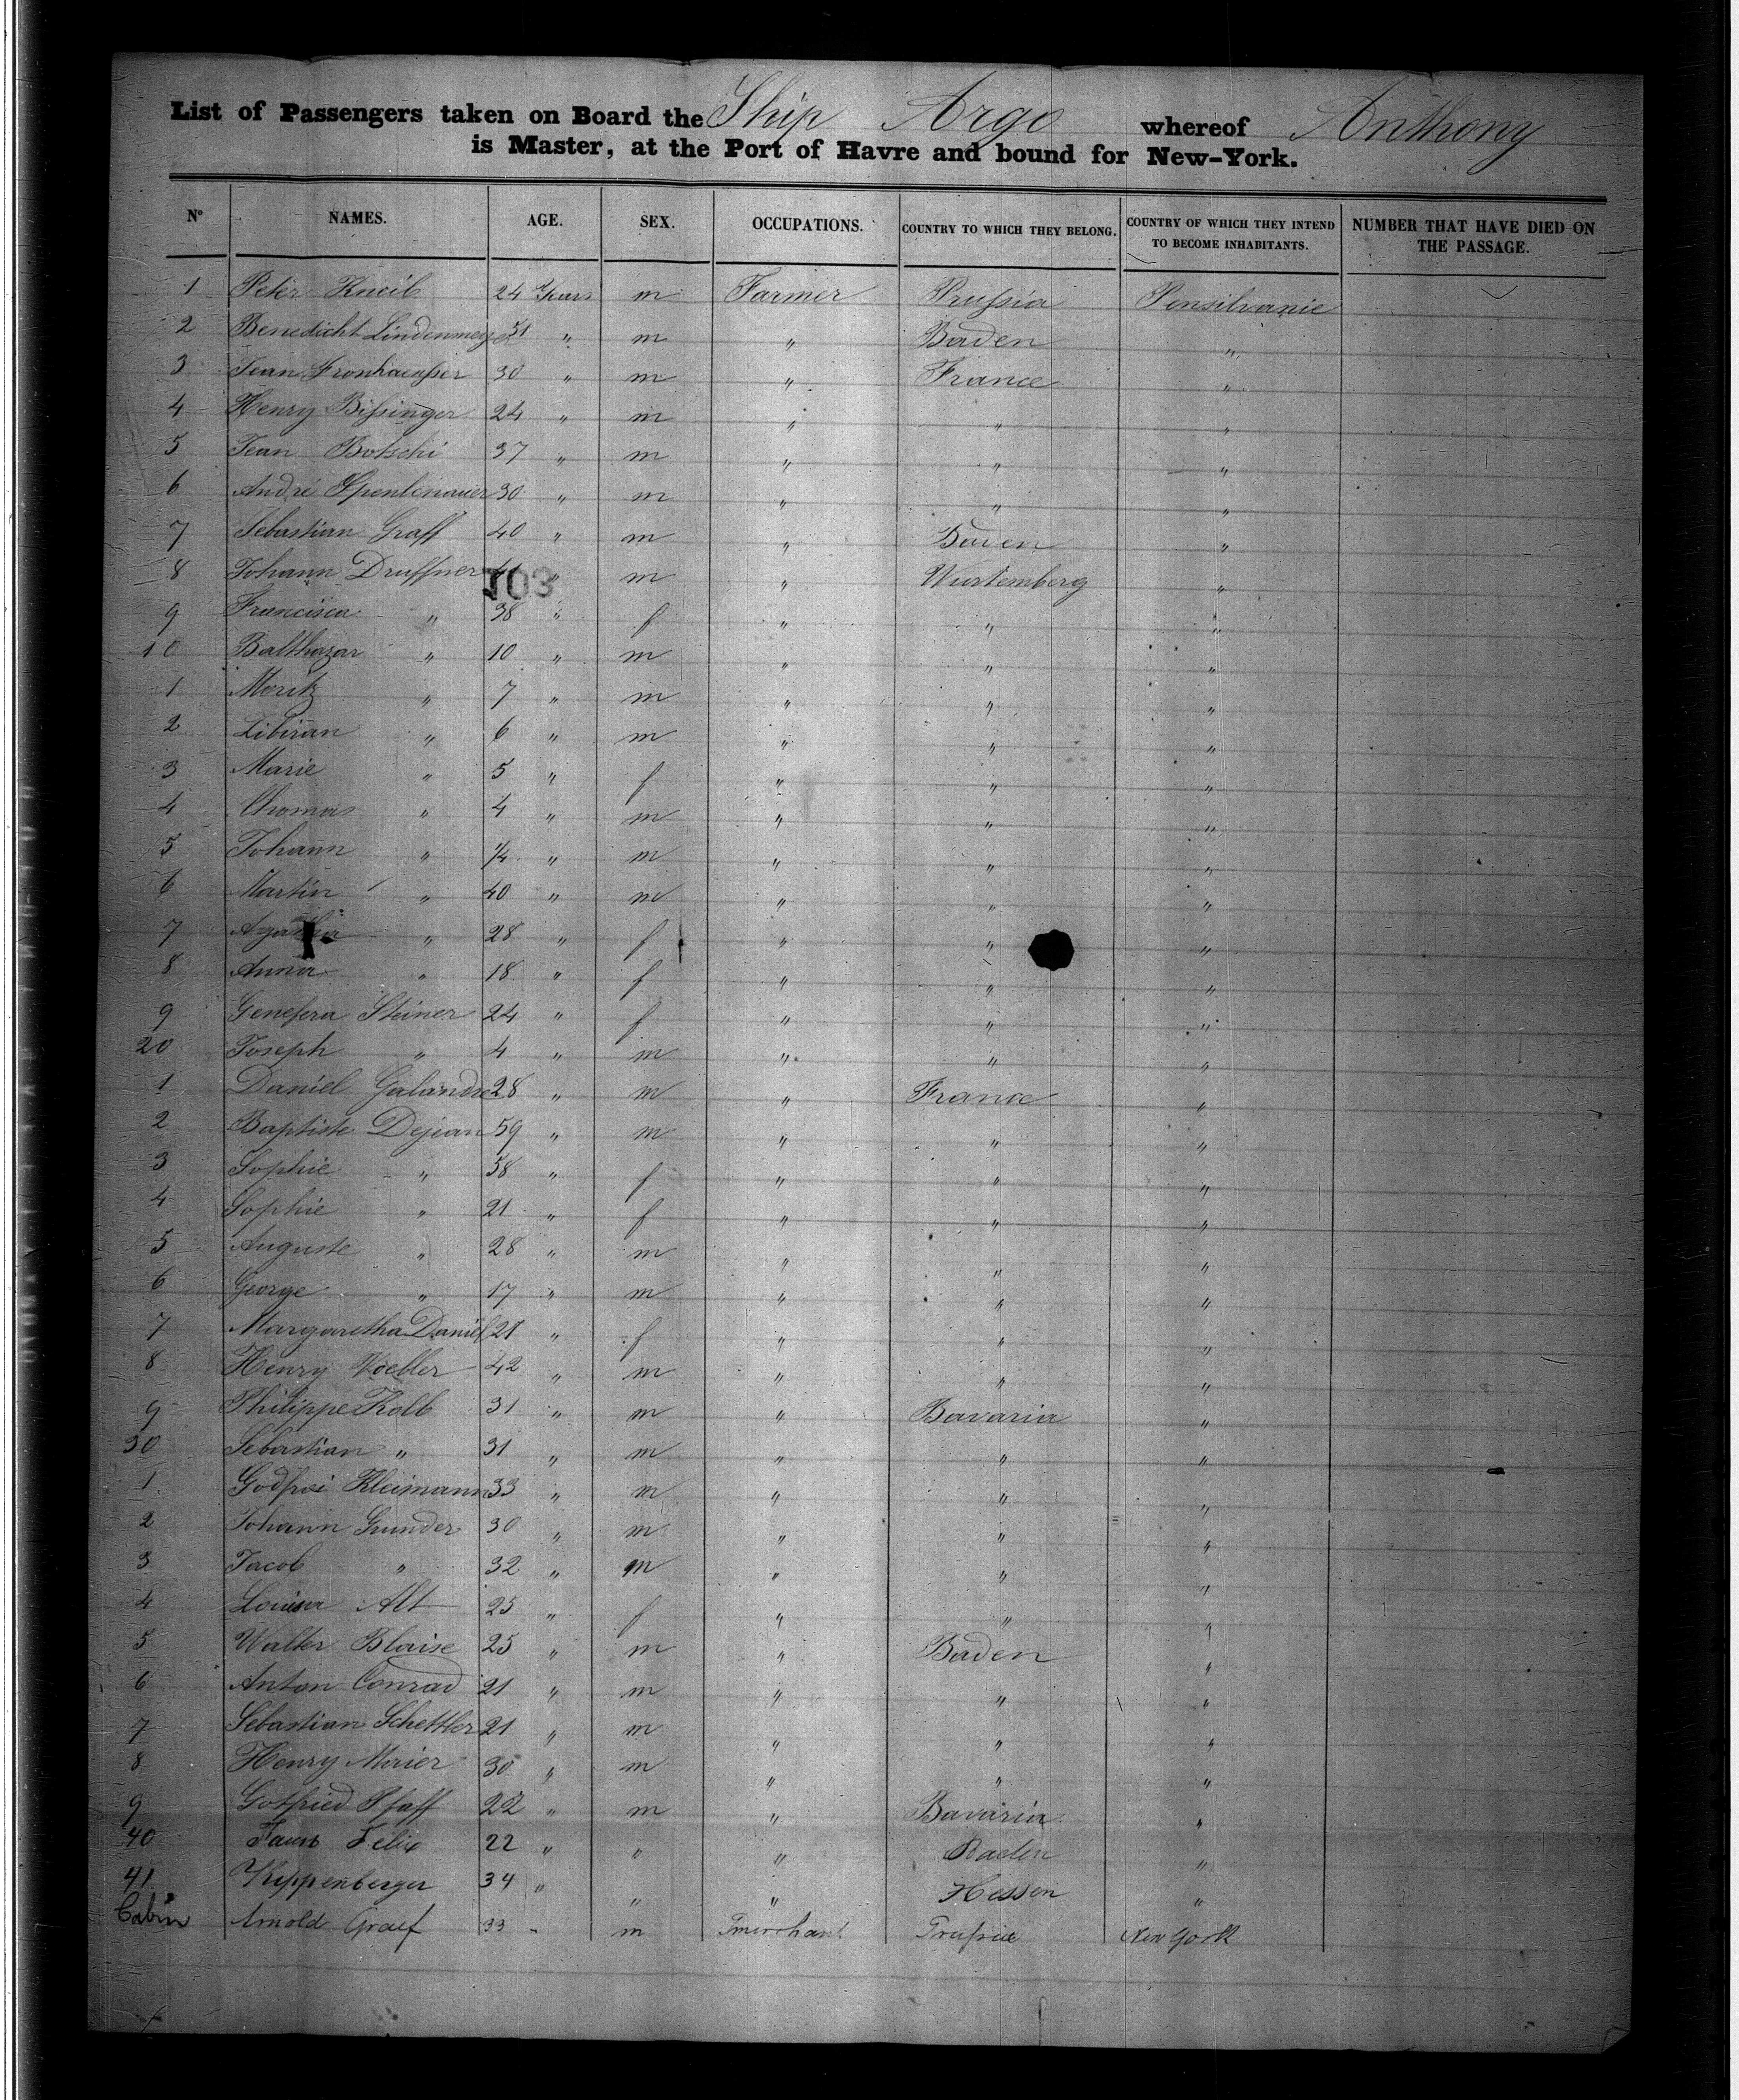 List of Passengers taken on Board the Ship Argo whereof Anthony
is Master, at the Port of Havre and bound for New-York.
Nº NAMES. AGE. SEX. OCCUPATIONS. COUNTRY TO WHICH THEY BELONG. COUNTRY OF WHICH THEY INTEND TO BECOME INHABITANTS. NUMBER THAT HAVE DIED ON THE PASSAGE.
1 Peter Kneib 24 Years m Farmer Prussia Pensilvanie
2 Benedicht Lindenmeyer 51 " m " Baden "
3 Jean Fronhaeusser 30 " m " France "
4 Henry Bissinger 24 " m " " "
5 Jean Botschi 37 " m " " "
6 André 30 " m " " "
7 Sebastian Graff 40 " m " Baden "
8 Johann Druffner " m " Wurtemberg "
103
9 Francisca " 38 " f " " "
10 Balthazar " 10 " m " " "
1 Moritz " 7 " m " " "
2 " 6 " m " " "
3 Marie " 5 " f " " "
4 Thomas " 4 " m " " "
5 Johann " 1/4 " m " " "
6 Martin " 40 " m " " "
7 Agatha " 28 " f " " "
8 Anna " 18 " f " " "
9 Genefera Steiner 24 " f " " "
20 Joseph " 4 " m " " "
1 Daniel Galandre 28 " m " France "
2 Baptiste Dejean 59 " m " " "
3 Sophie " 58 " f " " "
4 Sophie " 21 " f " " "
5 Auguste " 28 " m " " "
6 George " 17 " m " " "
7 Margaretha Daniel 21 " f " " "
8 Henry Voebler 42 " m " " "
9 Philippe Kolb 31 " m " Bavaria "
30 Sebastian " 31 " m " " "
1 Godfroi Kleimann 33 " m " " "
2 Johann Gunder 30 " m " " "
3 Jacob " 32 " m " " "
4 Louisa Alt 25 " f " " "
5 Walter Blaise 25 " m " Baden "
6 Anton Conrad 21 " m " " "
7 Sebastian Schettler 21 " m " " "
8 Henry Maier 30 " m " " "
9 Gotfried Pfaff 22 " m " Bavaria "
40 Felix 22 " " " Baden "
41 Kippenberger 34 " " " Hessen "
Cabin Arnold Graef 33 " m merchant Prussia New York